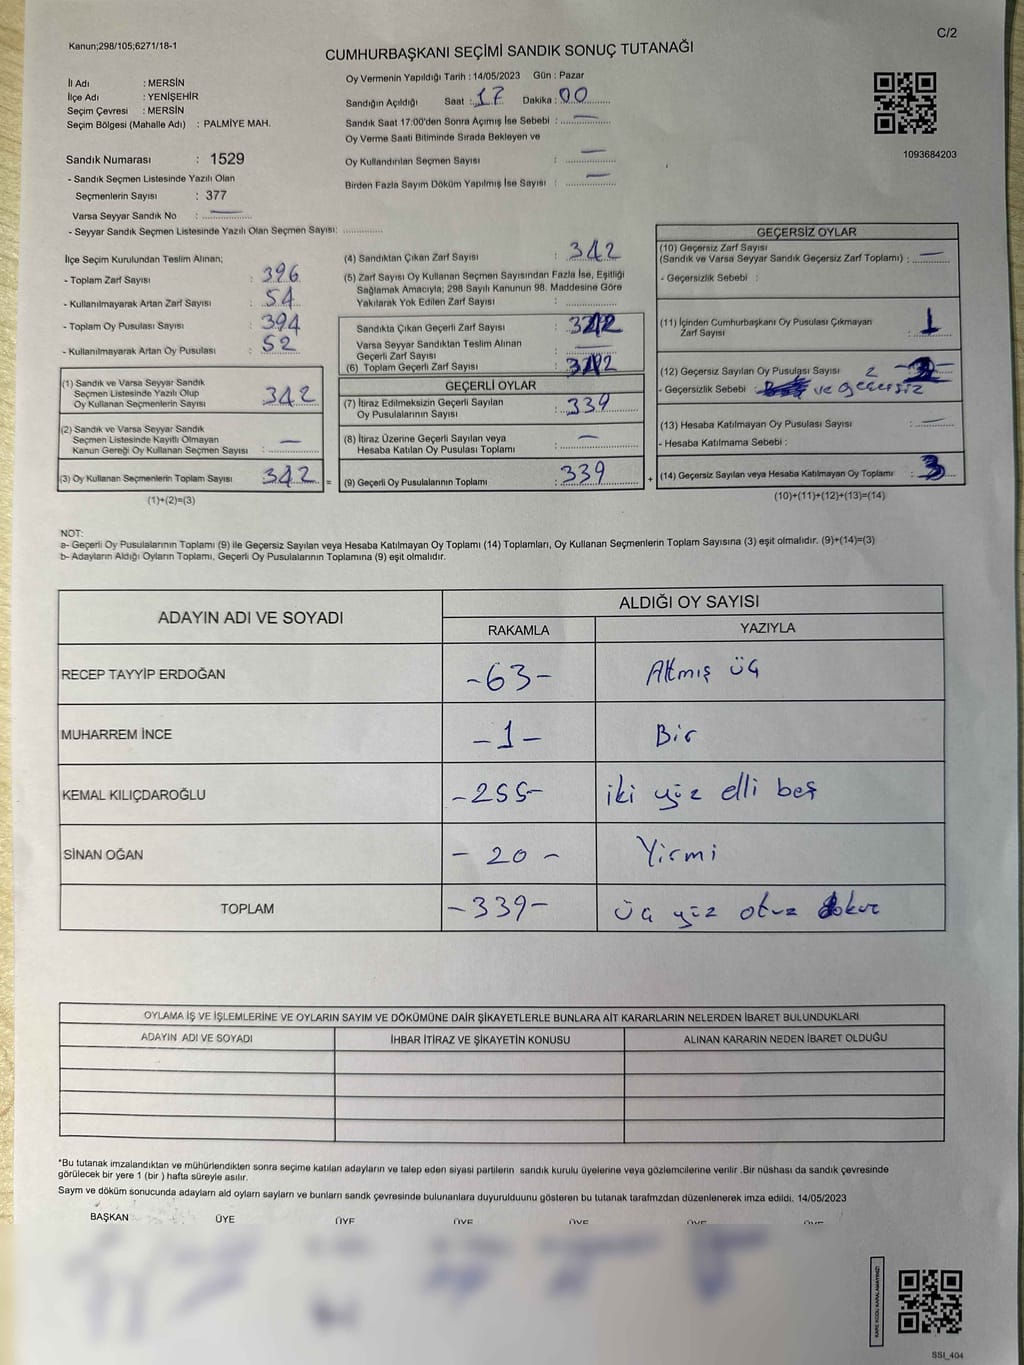 Kanun;298/105;6271/18-1
C/2
CUMHURBAŞKANI SEÇİMİ SANDIK SONUÇ TUTANAĞI
İl Adı : MERSİN
İlçe Adı : YENİŞEHİR
Seçim Çevresi : MERSİN
Seçim Bölgesi (Mahalle Adı) : PALMİYE MAH.
Sandık Numarası : 1529
- Sandık Seçmen Listesinde Yazılı Olan
Seçmenlerin Sayısı : 377
Varsa Seyyar Sandık No : —
- Seyyar Sandık Seçmen Listesinde Yazılı Olan Seçmen Sayısı:
Oy Vermenin Yapıldığı Tarih : 14/05/2023 Gün : Pazar
Sandığın Açıldığı Saat : 17 Dakika : 00
Sandık Saat 17:00'den Sonra Açımış İse Sebebi : —
Oy Verme Saati Bitiminde Sırada Bekleyen ve
Oy Kullandırılan Seçmen Sayısı : —
Birden Fazla Sayım Döküm Yapılmış İse Sayısı : —
1093684203
İlçe Seçim Kurulundan Teslim Alınan;
- Toplam Zarf Sayısı : 396
- Kullanılmayarak Artan Zarf Sayısı : 54
- Toplam Oy Pusulası Sayısı : 394
- Kullanılmayarak Artan Oy Pusulası : 52
(1) Sandık ve Varsa Seyyar Sandık
Seçmen Listesinde Yazılı Olup
Oy Kullanan Seçmenlerin Sayısı : 342
(2) Sandık ve Varsa Seyyar Sandık
Seçmen Listesinde Kayıtlı Olmayan
Kanun Gereği Oy Kullanan Seçmen Sayısı : —
(3) Oy Kullanan Seçmenlerin Toplam Sayısı : 342 =
(1)+(2)=(3)
(4) Sandıktan Çıkan Zarf Sayısı : 342
(5) Zarf Sayısı Oy Kullanan Seçmen Sayısından Fazla İse, Eşitliği
Sağlamak Amacıyla; 298 Sayılı Kanunun 98. Maddesine Göre
Yakılarak Yok Edilen Zarf Sayısı :
Sandıkta Çıkan Geçerli Zarf Sayısı :
Varsa Seyyar Sandıktan Teslim Alınan
Geçerli Zarf Sayısı : —
(6) Toplam Geçerli Zarf Sayısı :
GEÇERLİ OYLAR
(7) İtiraz Edilmeksizin Geçerli Sayılan
Oy Pusulalarının Sayısı : 339
(8) İtiraz Üzerine Geçerli Sayılan veya
Hesaba Katılan Oy Pusulası Toplamı : —
(9) Geçerli Oy Pusulalarının Toplamı : 339 +
GEÇERSİZ OYLAR
(10) Geçersiz Zarf Sayısı
(Sandık ve Varsa Seyyar Sandık Geçersiz Zarf Toplamı) : —
- Geçersizlik Sebebi :
(11) İçinden Cumhurbaşkanı Oy Pusulası Çıkmayan
Zarf Sayısı : 1
(12) Geçersiz Sayılan Oy Pusulası Sayısı : 2
- Geçersizlik Sebebi : ve geçersiz
(13) Hesaba Katılmayan Oy Pusulası Sayısı : —
- Hesaba Katılmama Sebebi :
(14) Geçersiz Sayılan veya Hesaba Katılmayan Oy Toplamı : 3
(10)+(11)+(12)+(13)=(14)
NOT:
a- Geçerli Oy Pusulalarının Toplamı (9) ile Geçersiz Sayılan veya Hesaba Katılmayan Oy Toplamı (14) Toplamları, Oy Kullanan Seçmenlerin Toplam Sayısına (3) eşit olmalıdır. (9)+(14)=(3)
b- Adayların Aldığı Oyların Toplamı, Geçerli Oy Pusulalarının Toplamına (9) eşit olmalıdır.
ADAYIN ADI VE SOYADI
ALDIĞI OY SAYISI
RAKAMLA YAZIYLA
RECEP TAYYİP ERDOĞAN -63- Altmış üç
MUHARREM İNCE -1- Bir
KEMAL KILIÇDAROĞLU -255- iki yüz elli beş
SİNAN OĞAN - 20 - Yirmi
TOPLAM -339- üç yüz otuz dokuz
OYLAMA İŞ VE İŞLEMLERİNE VE OYLARIN SAYIM VE DÖKÜMÜNE DAİR ŞİKAYETLERLE BUNLARA AİT KARARLARIN NELERDEN İBARET BULUNDUKLARI
ADAYIN ADI VE SOYADI İHBAR İTİRAZ VE ŞİKAYETİN KONUSU ALINAN KARARIN NEDEN İBARET OLDUĞU
*Bu tutanak imzalandıktan ve mühürlendikten sonra seçime katılan adayların ve talep eden siyasi partilerin sandık kurulu üyelerine veya gözlemcilerine verilir .Bir nüshası da sandık çevresinde
görülecek bir yere 1 (bir ) hafta süreyle asılır.
Sayım ve döküm sonucunda adayların ald oyların sayları ve bunların sandk çevresinde bulunanlara duyurulduunu gösteren bu tutanak tarafmzdan düzenlenerek imza edildi. 14/05/2023
BAŞKAN ÜYE ÜYE ÜYE ÜYE ÜYE ÜYE
KARE KODU KARALAMAYINIZ!
SSI_404